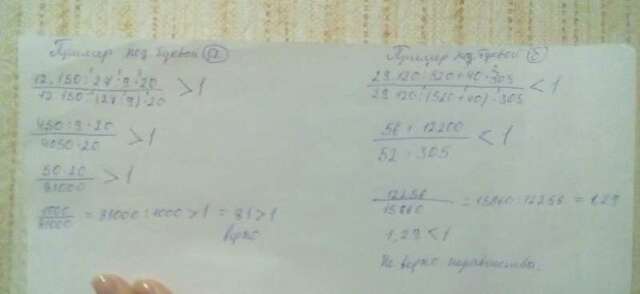 Пример под буквой а
12·150:27·9·20 / 12·150·(27·9)·20 > 1
450:9·20 / 4050·20 > 1
50·20 / 81000 > 1
1000 / 81000 = 81000:1000 > 1 = 81 > 1
верно
Пример под буквой б
29·120:520+40·305 / 29·120:(520+40)·305 < 1
56 + 12200 / 52 · 305 < 1
12256 / 15860 = 15860:12256 = 1,29
1,29 < 1
Не верно неравенство.